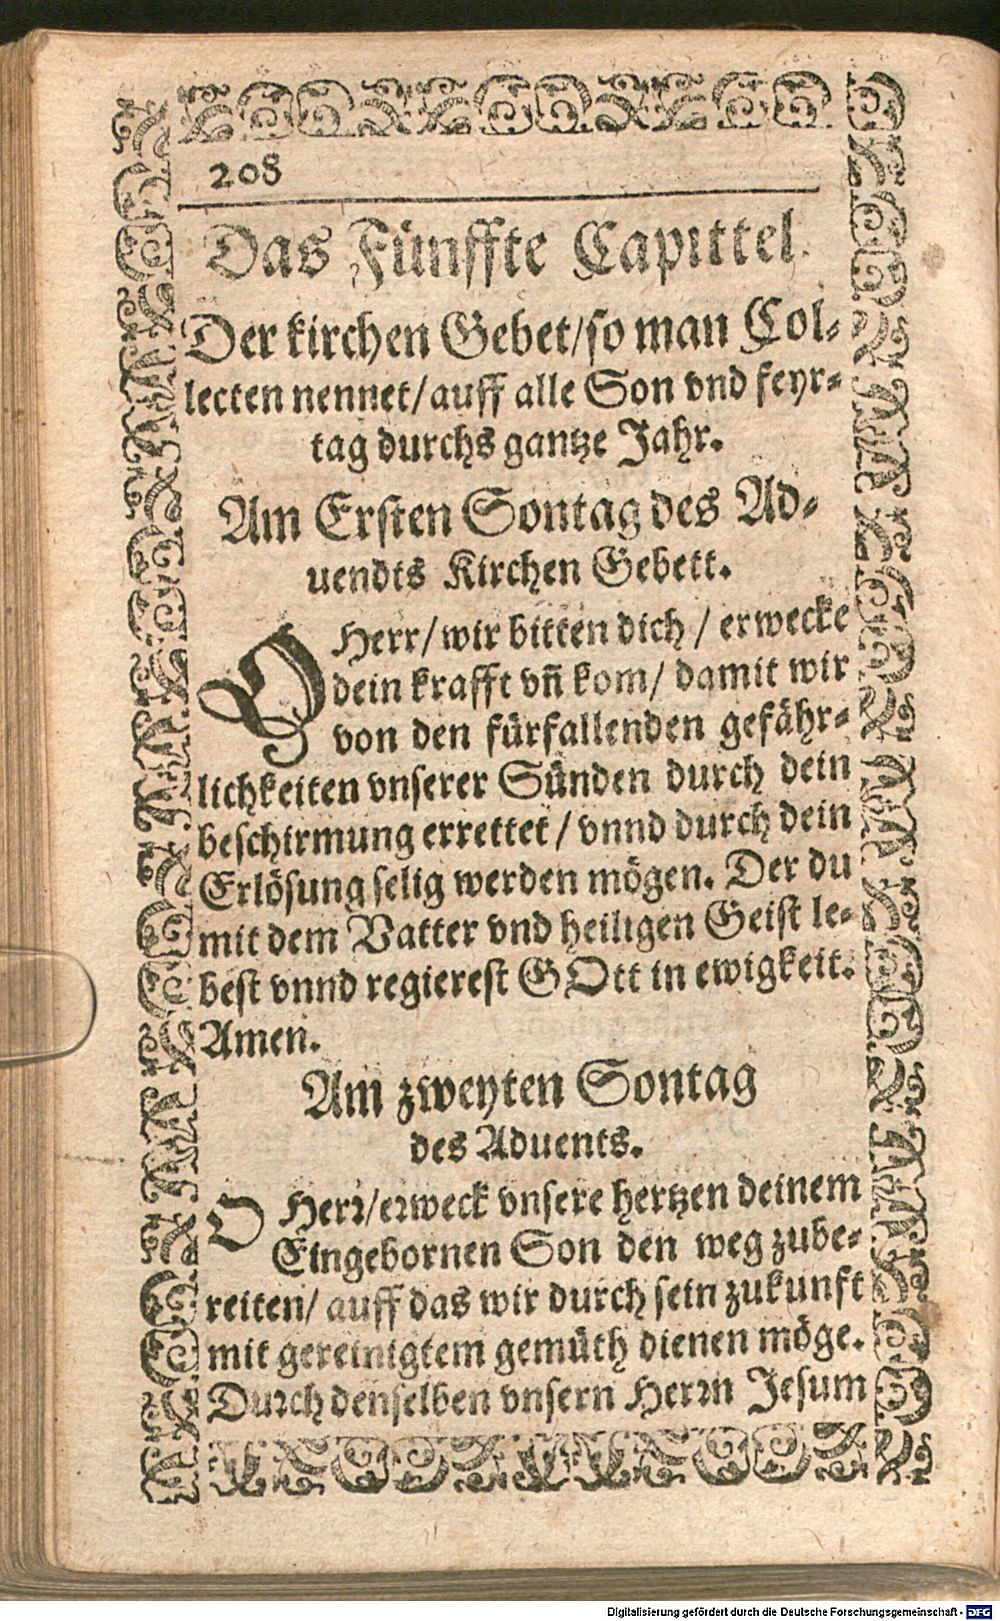 208
Das Fünffte Capittel.
Der kirchen Gebet/so man Col-
lecten nennet/auff alle Son vnd feyr-
tag durchs gantze Jahr.
Am Ersten Sontag des Ad-
uendts Kirchen Gebett.
O Herr/ wir bitten dich / erwecke
dein krafft vñ kom/ damit wir
von den fürfallenden gefähr-
lichkeiten vnserer Sünden durch dein
beschirmung errettet / vnnd durch dein
Erlösung selig werden mögen. Der du
mit dem Vatter vnd heiligen Geist le-
best vnnd regierest GOtt in ewigkeit.
Amen.
Am zweyten Sontag
des Aduents.
O Herr/erweck vnsere hertzen deinem
Eingebornen Son den weg zube-
reiten/ auff das wir durch sein zukunfft
mit gereinigtem gemüth dienen möge.
Durch denselben vnsern Herrn Jesum
Digitalisierung gefördert durch die Deutsche Forschungsgemeinschaft - DFG